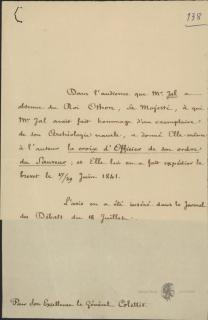 138
Dans l'audience que Mr. Jal a
obtenue du Roi Othon, Sa Majesté, à qui
Mr Jal avait fait hommage d'un exemplaire
de son Archéologie navale, a donné Elle-même
à l'auteur la croix d'Officier de son ordre
du Sauveur; et Elle lui en a fait expédier le
brevet le 17/29 Juin 1841.
L'avis en a été inséré dans le Journal
des Débats du 18 Juillet.
Pour Son Excellence le Général Colettis.